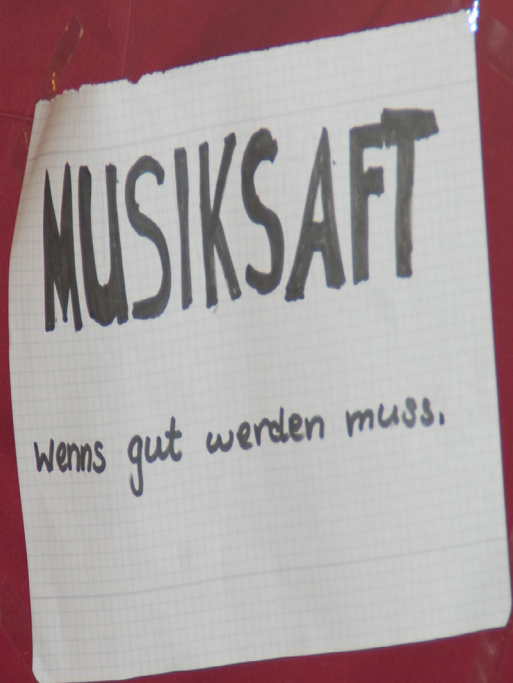 MUSIKSAFT
wenns gut werden muss.